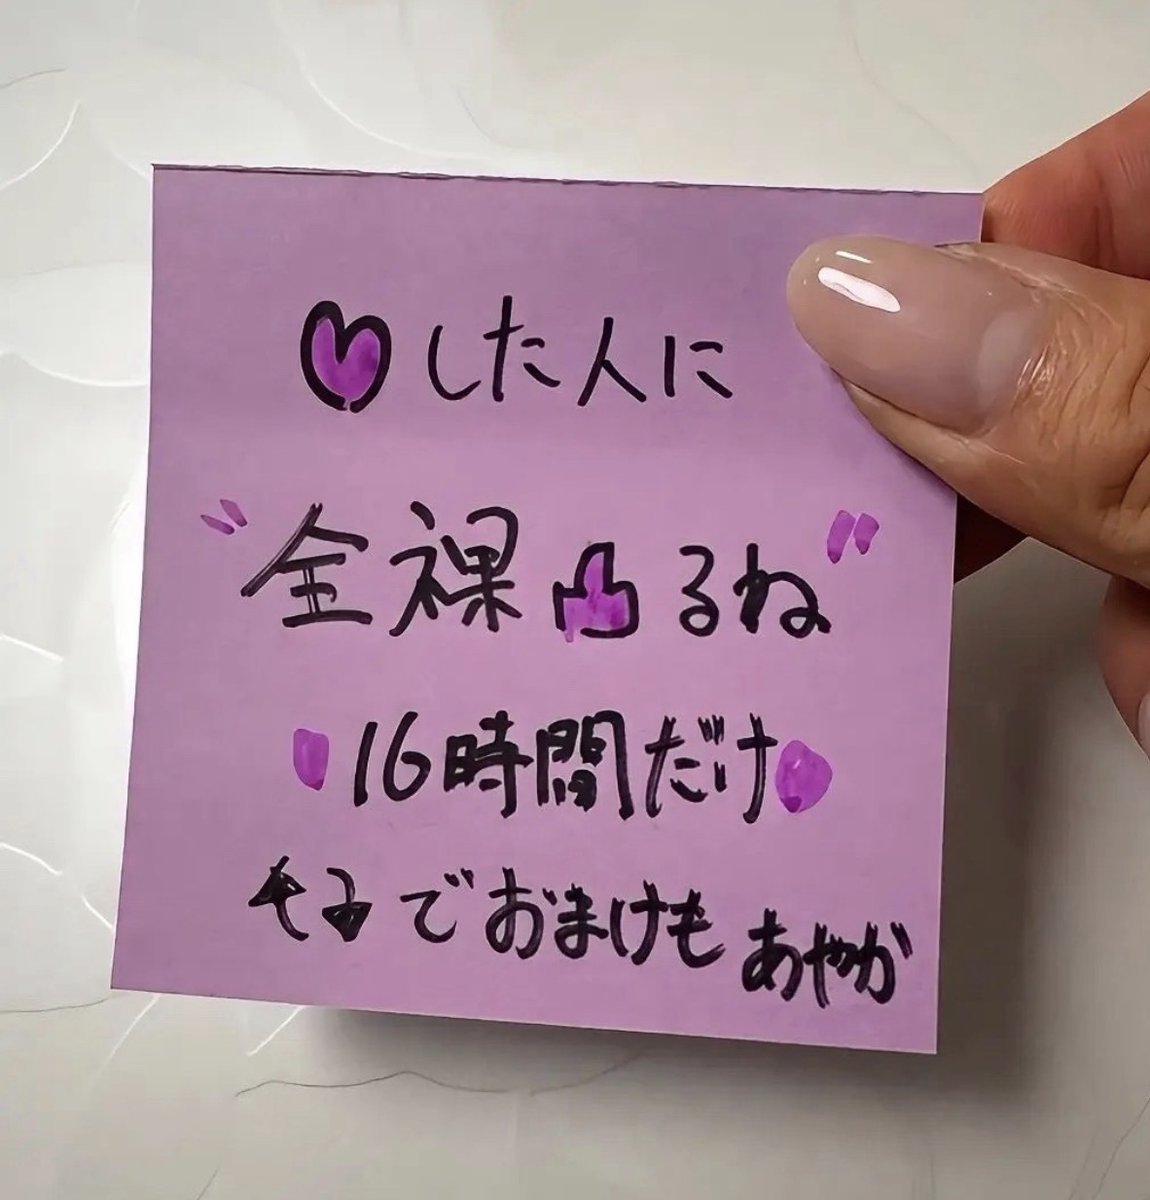 ♡した人に
"全裸凸るね"
16時間だけ
でおまけも
あやか